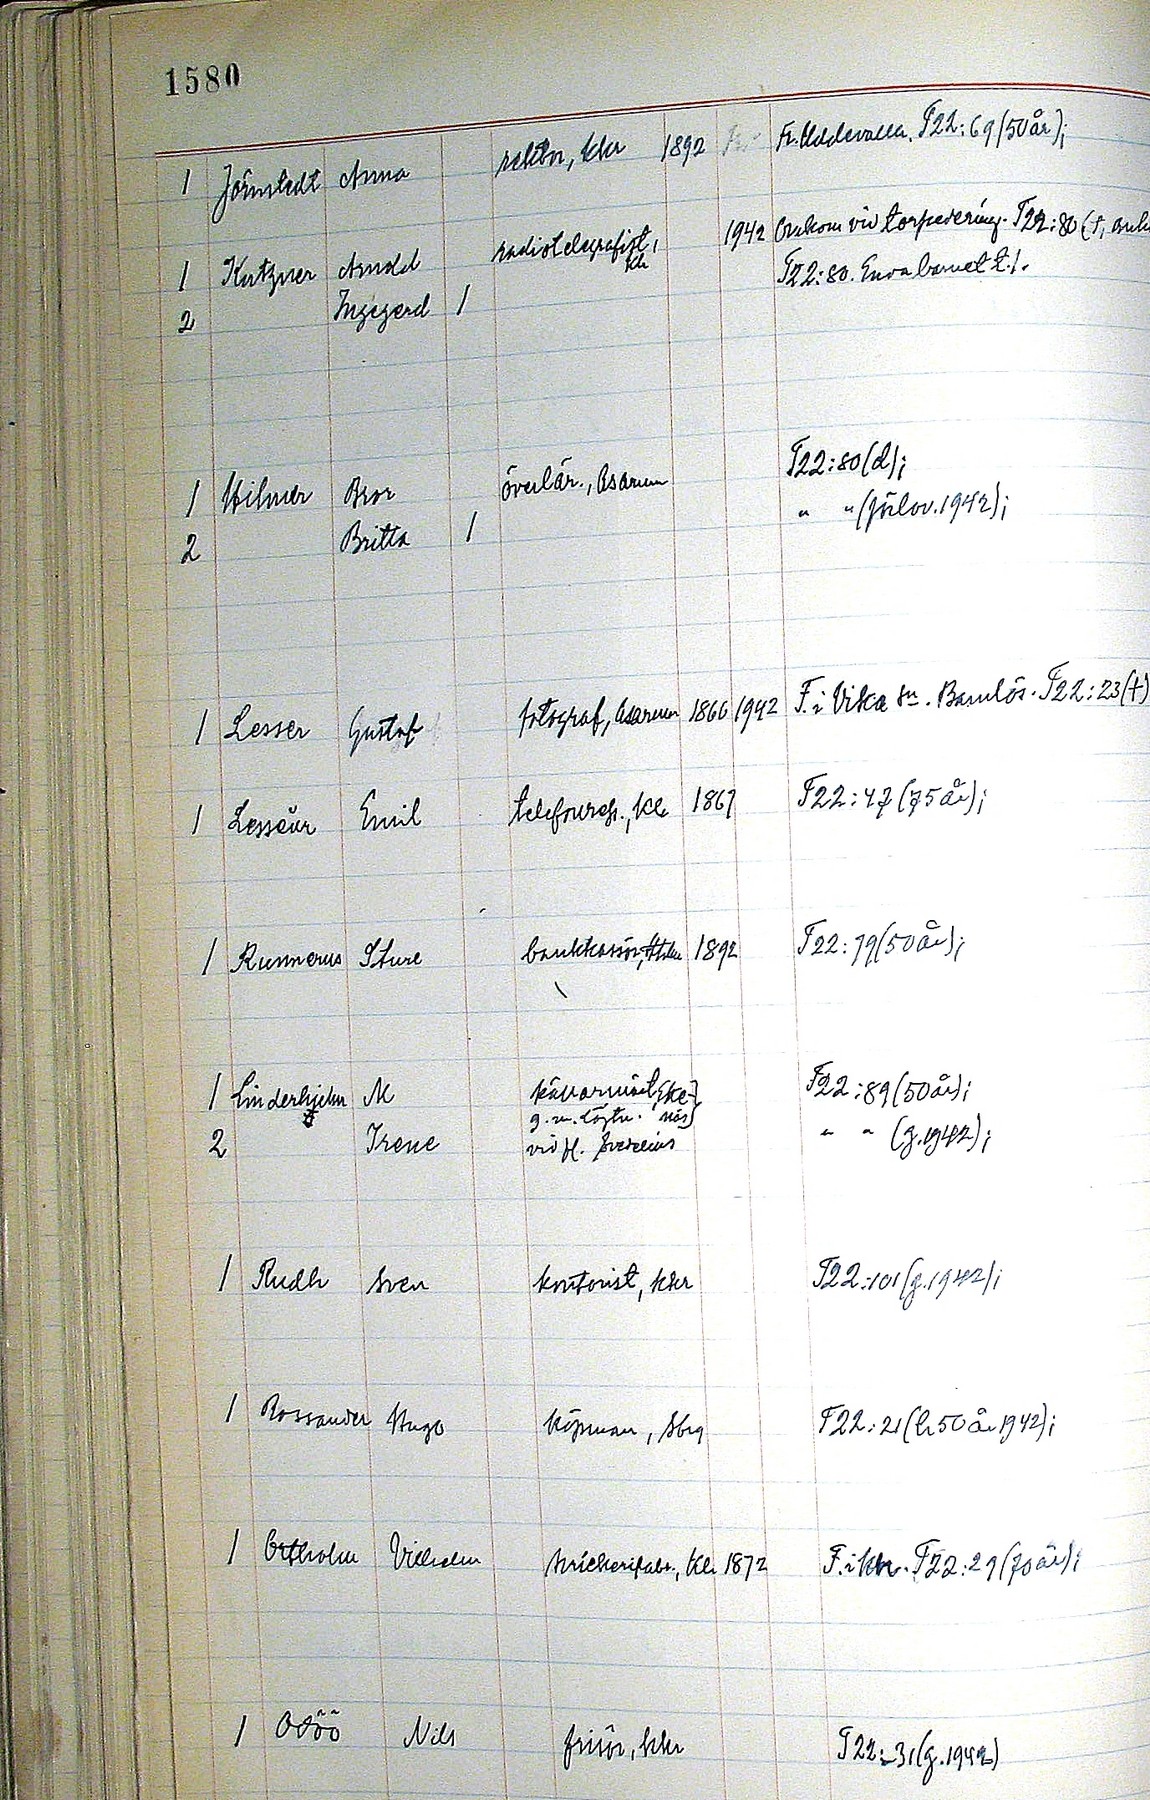 1580
1 Jörnstedt Anna rektor, Khr 1892 Fr. Uddevalla. T22:69(50år);
1 Kutzner Arnold radiotelegrafist, Kh 1942 Omkom vid torpedering. T22:80(†,
2 Ingegerd 1 T22:80. Enda barnet t. 1.
1 Hilmer Bror överlär., Asarum T22:80(d);
2 Britta 1 " " (förlov. 1942);
1 Lesser Gustaf fotograf, Asarum 1866 1942 F. i Vika sn. Barnlös. T22:23(†)
1 Lesseur Emil Kh 1867 T22:47(75år);
1 Runnerus Sture bankkassör, 1892 T22:79(50år);
1 Linderhjelm M källarmäst, Eke-} T22:89(50år);
g. m. näs}
2 Irene vid fl. Svecia " " (g.1942);
1 Rudh Sven kontorist, Khr T22:101(g.1942);
1 Rossander Hugo köpman, Sbg T22:21(b. 50 år 1942);
1 Ortholm Vilhelm Kh 1872 F. i Khr. T22:29(70år);
1 Odöö Nils frisör, Khr T22:31(g.1942)